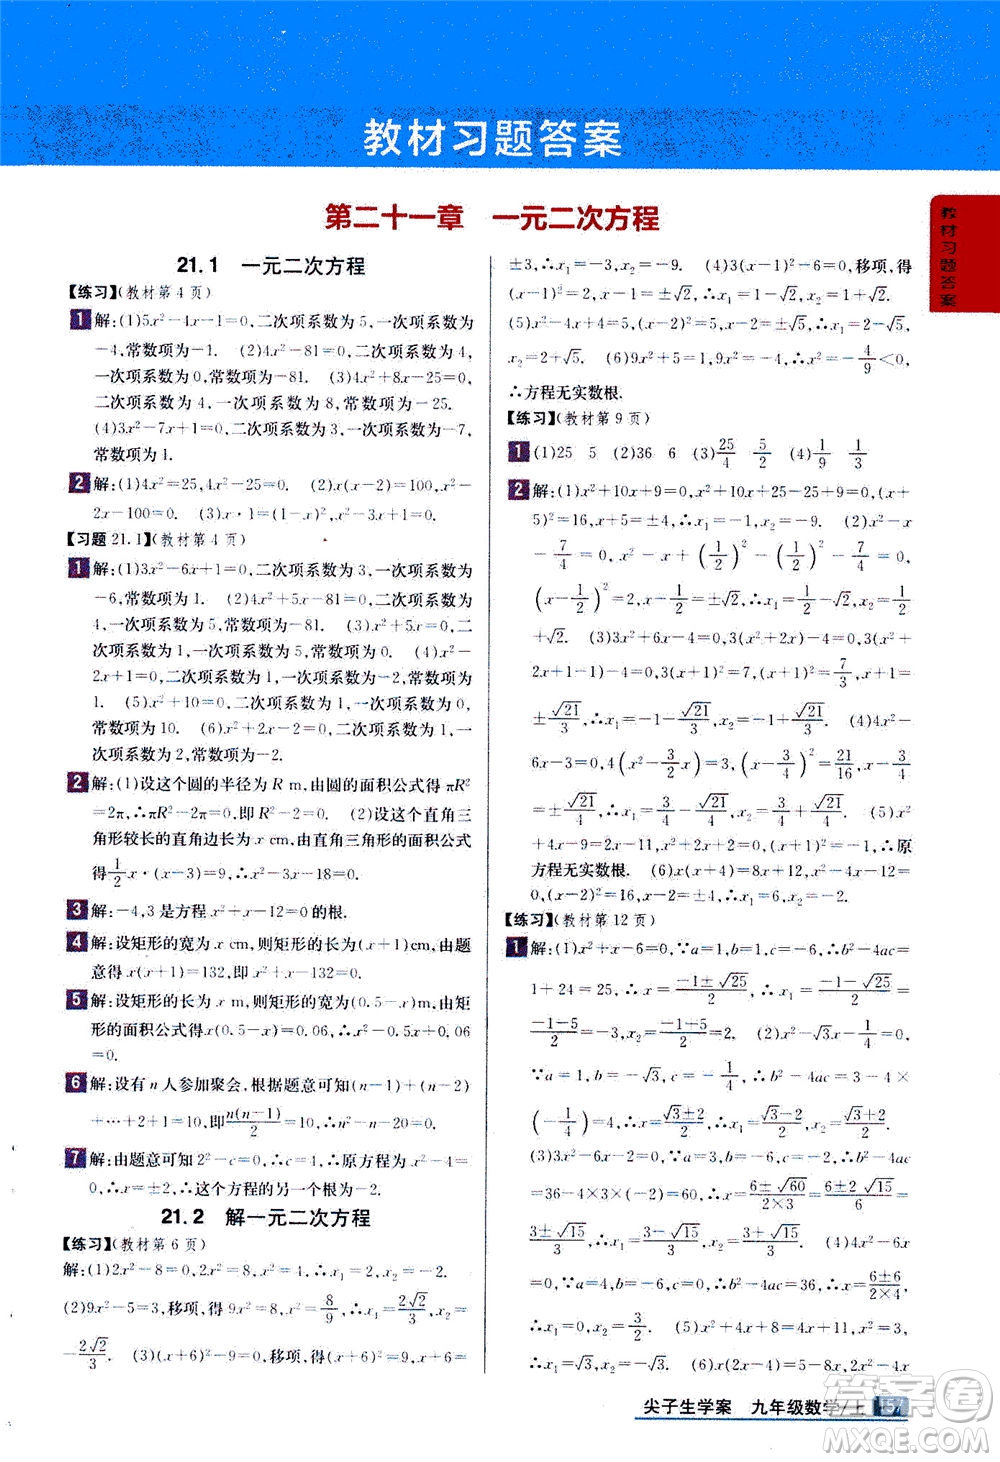 教材习题答案
第二十一章 一元二次方程
21.1 一元二次方程
【练习】(教材第4页)
1 解:(1)5x²-4x-1=0,二次项系数为5,一次项系数为
-4,常数项为-1. (2)4x²-81=0,二次项系数为4,
一次项系数为0,常数项为-81. (3)4x²+8x-25=0,
二次项系数为4,一次项系数为8,常数项为-25.
(4)3x²-7x+1=0,二次项系数为3,一次项系数为-7,
常数项为1.
2 解:(1)4x²=25,4x²-25=0. (2)x(x-2)=100,x²-
2x-100=0. (3)x·1=(1-x)²,x²-3x+1=0.
【习题21.1】(教材第4页)
1 解:(1)3x²-6x+1=0,二次项系数为3,一次项系数为
-6,常数项为1. (2)4x²+5x-81=0,二次项系数为
4,一次项系数为5,常数项为-81. (3)x²+5x=0,二
次项系数为1,一次项系数为5,常数项为0. (4)x²-
2x+1=0,二次项系数为1,一次项系数为-2,常数项为
1. (5)x²+10=0,二次项系数为1,一次项系数为0,
常数项为10. (6)x²+2x-2=0,二次项系数为1,一
次项系数为2,常数项为-2.
2 解:(1)设这个圆的半径为R m,由圆的面积公式得πR²
=2π,∴πR²-2π=0. (2)设这个直角三
角形较长的直角边长为x cm,由直角三角形的面积公式
得1/2x·(x-3)=9,∴x²-3x-18=0.
3 解:-4,3是方程x²+x-12=0的根.
4 解:设矩形的宽为x cm,则矩形的长为(x+1)cm,由题
意得x(x+1)=132,即x²+x-132=0.
5 解:设矩形的长为x m,则矩形的宽为(0.5-x)m,由矩
形的面积公式得x(0.5-x)=0.06,∴x²-0.5x+0.06
=0.
6 解:设有n人参加聚会,根据题意可知(n-1)+(n-2)
+…+2+1=10,即n(n-1)/2=10,n²-n-20=0.
7 解:由题意可知2²-c=0,∴c=4,∴原方程为x²-4=
0,∴x=±2,∴这个方程的另一个根为-2.
21.2 解一元二次方程
【练习】(教材第6页)
解:(1)2x²-8=0,原方程可化为x²=4,∴x₁=2,x₂=-2.
(2)9x²-5=3,移项,得9x²=8,x²=8/9,∴x₁=2√2/3,x₂=
-2√2/3. (3)(x+6)²-9=0,移项,得(x+6)²=9,x+6=
±3,∴x₁=-3,x₂=-9. (4)3(x-1)²-6=0,移项,得
(x-1)²=2,x-1=±√2,∴x₁=1+√2,x₂=1-√2.
(5)x²-4x+4=5,(x-2)²=5,x-2=±√5,∴x₁=2-√5,
x₂=2+√5. (6)9x²+5=1,9x²=1-5,9x²=-4,x²=-4/9<0,
∴方程无实数根.
【练习】(教材第9页)
1 (1)25 5 (2)36 6 (3)25/4 5/2 (4)1/9 1/3
2 解:(1)x²+10x+9=0,x²+10x+25-25+9=0,(x+
5)²=16,x+5=±4,∴x₁=-1,x₂=-9. (2)x²-x
-7/4=0,x²-x+(1/2)²-(1/2)²-7/4=0,
(x-1/2)²=2,x-1/2=±√2,∴x₁=1/2-√2,x₂=1/2
+√2. (3)3x²+6x-4=0,3(x²+2x)-4=0,3(x²+
2x+1-1)-4=0,3(x+1)²=7,(x+1)²=7/3,x+1=
±√21/3,∴x₁=-1-√21/3,x₂=-1+√21/3. (4)4x²-
6x-3=0,4(x²-3/2x)=3,(x-3/4)²=21/16,x-3/4
=±√21/4,∴x₁=3/4-√21/4,x₂=3/4+√21/4. (5)x²
+4x-9=2x-11,x²+2x+2=0,(x+1)²=-1,∴原
方程无实数根. (6)x(x+4)=8x+12,x²-4x-12=
0,(x-2)²=16,x-2=±4,∴x₁=6,x₂=-2.
【练习】(教材第12页)
1 解:(1)x²+x-6=0,∵a=1,b=1,c=-6,∴b²-4ac=
1+24=25>0,∴x=(-1±√25)/2,∴x₁=
(-1-5)/2=-3,x₂=(-1+5)/2=2. (2)x²-√3x-1/4=0,
∵a=1,b=-√3,c=-1/4,∴b²-4ac=3-4×
(-1/4)=4>0,∴x₁=(√3+2)/2,x₂=(√3-2)/2.
(3)3x²-6x-2=0,∵a=3,b=-6,c=-2,∴b²-4ac
=36-4×3×(-2)=60>0,∴x=(6±√60)/(2×3)=(6±2√15)/6=
(3±√15)/3,∴x₁=(3+√15)/3,x₂=(3-√15)/3. (4)4x²-6x
=0,∵a=4,b=-6,c=0,∴b²-4ac=36>0,∴x=(6±6)/(2×4),
∴x₁=0,x₂=3/2. (5)x²+4x+8=4x+11,x²=3,
∴x₁=√3,x₂=-√3. (6)x(2x-4)=5-8x,2x²+4x
教材习题答案
尖子生学案 九年级数学/上 157
答案卷
MXQE.COM